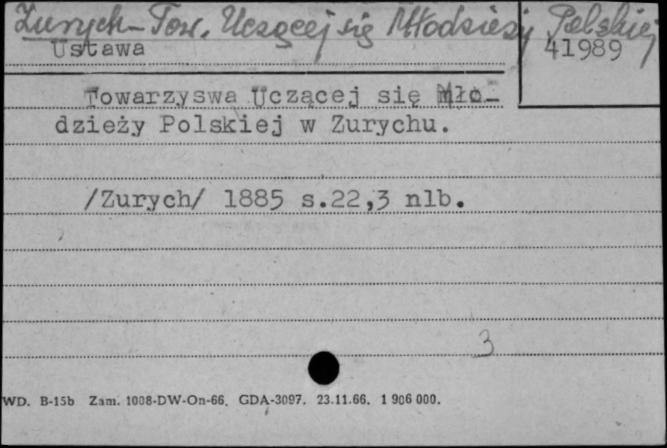 Zurych - Tow. Uczącej się Młodzieży Polskiej
Ustawa
41989
Towarzyswa Uczącej się Mło-
dzieży Polskiej w Zurychu.
/Zurych/ 1885 s.22,3 nlb.
3
WD. B-15b Zam. 1008-DW-On-66. GDA-3097. 23.11.66. 1 906 000.